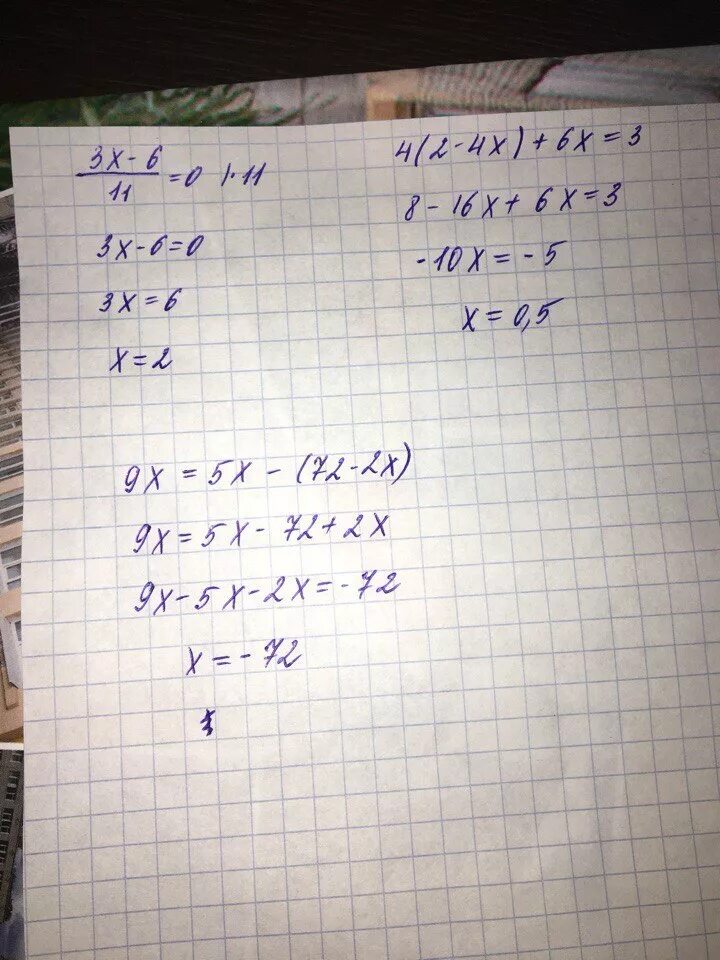 (3x-6)/11 = 0 |·11
3x-6=0
3x=6
x=2
4(2-4x)+6x=3
8-16x+6x=3
-10x=-5
x=0,5
9x=5x-(72-2x)
9x=5x-72+2x
9x-5x-2x=-72
x=-72